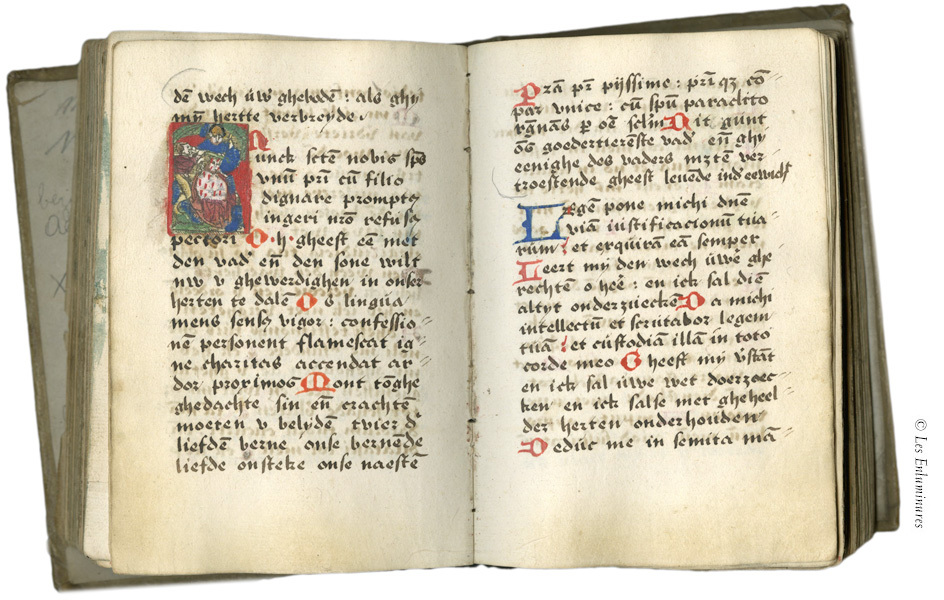 dē wech ūw̄ ghebodē : als ghy
myn hertte verbreyde .
Nunck sctē nobis sp̄s
vnūū pr̄i cū filio
dignare promptꝰ
ingeri nr̄o refusꝰ
pectori O · h · gheest eē met
den vad eñ den sone wilt
nw v ghewerdighen in onser
herten te dalē Os lingua
mens sensꝫ vigor : confessio⸗
nē personent flamescat ig⸗
ne charitas accendat ar⸗
dor proximos Mont tōghe
ghedachte sin eñ crachtē
moeten v belydē tvier d'
liefdē berne onse bernēde
liefde onsteke onse naestē
Prā pr̄ pijssime : pr̄iqꝫ cō⸗
par vnice : cū spū paraclito
rgnās p oē sclm̄ Dit gunt
ōs goedertierēste vad' eñ ghy
eenighe des vaders mztē ver⸗
troestende gheest leuēde ind' eewich
Legē pone michi dn̄e
viā iustificacionū tua⸗
rum : et exquirā eā semper
Leert my den wech ūwē ghe
rechtē o heē : en ick sal diē
altyt onderzueckē Da michi
intellectū et scrutabor legem
tuā : et custodiā illā in toto
corde meo Gheeft my v̄stāt
en ick sal ūwe wet doerzoec⸗
ken en ick salse met gheheel
der herten onderhouden
Deduc me in semita mā⸗
© Les Enluminures